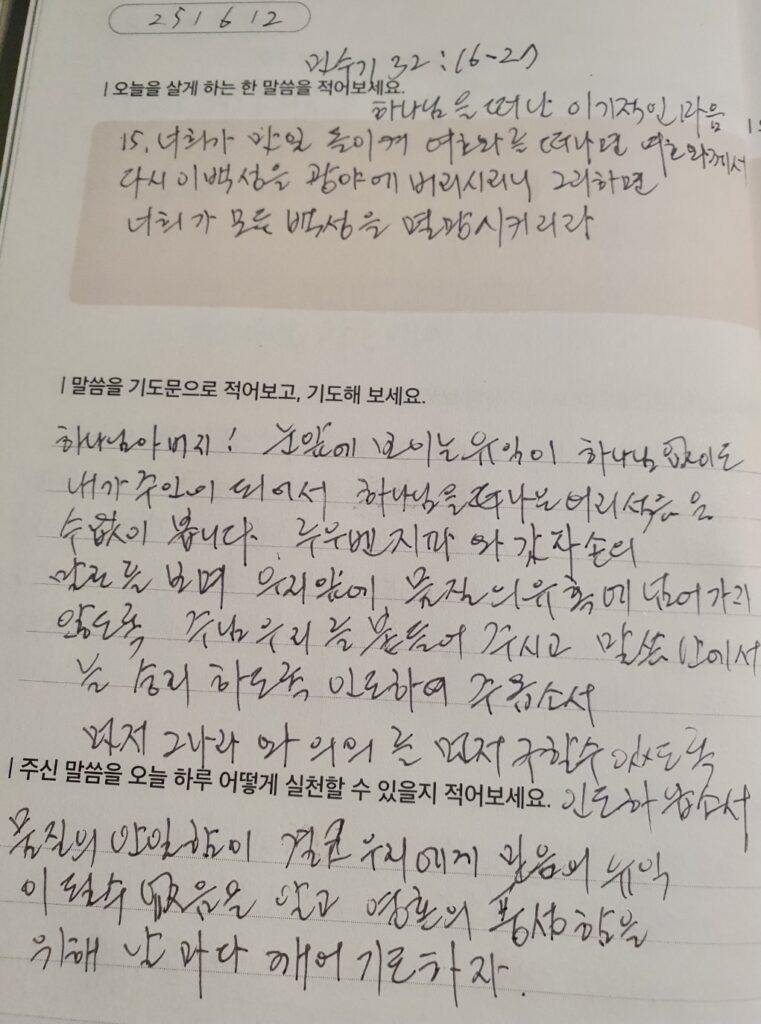 251612
민수기 32:16-27
| 오늘을 살게 하는 한 말씀을 적어보세요.
하나님을 떠난 이기적인 마음
15. 너희가 만일 돌이켜 여호와를 떠나면 여호와께서
다시 이백성을 광야에 버리시리니 그리하면
너희가 모든 백성을 멸망시키리라
| 말씀을 기도문으로 적어보고, 기도해 보세요.
하나님아버지! 눈앞에 보이는 유익이 하나님 없이도
내가 주인이 되어서 하나님을 떠나는 어리석음을
수없이 봅니다. 루우벤지파와 갓자손의
말로를 보며 우리앞에 물질의 유혹에 넘어가지
않도록 주님 우리를 붙들어 주시고 말씀 안에서
늘 승리 하도록 인도하여 주옵소서
먼저 그나라와 의의를 먼저 구할수 있도록
| 주신 말씀을 오늘 하루 어떻게 실천할 수 있을지 적어보세요.
인도하옵소서
물질의 안일함이 결코 우리에게 믿음의 유익
이 될수 없음을 알고 영혼의 풍성함을
위해 날마다 깨어 기도하자.